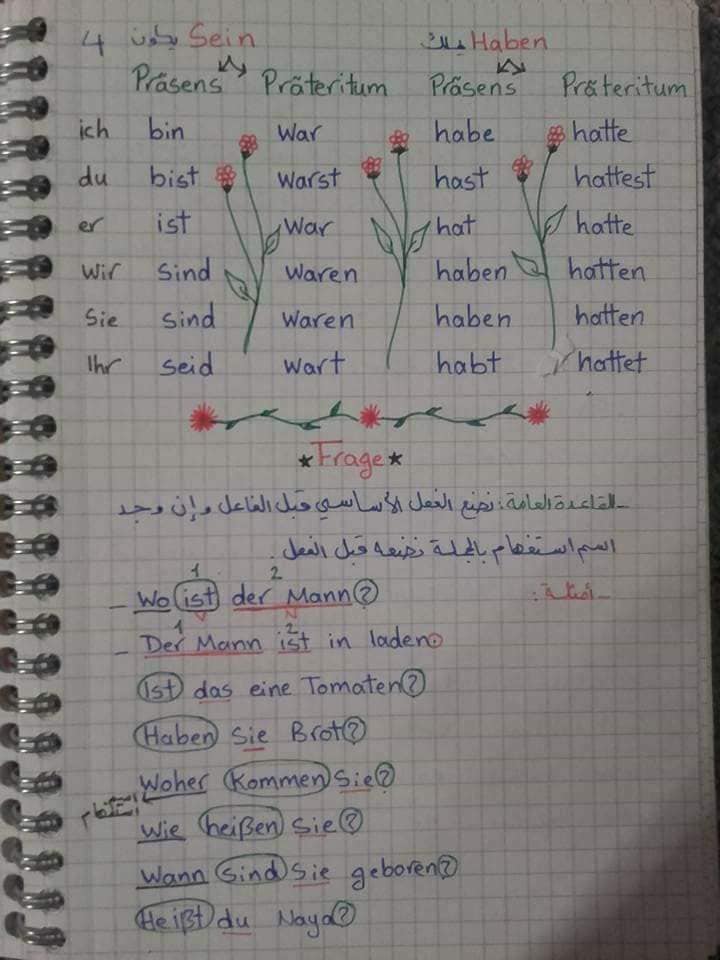 4 يكون Sein يملك Haben
Präsens Präteritum Präsens Präteritum
ich bin war habe hatte
du bist warst hast hattest
er ist war hat hatte
wir sind waren haben hatten
Sie sind waren haben hatten
Ihr seid wart habt hattet
*Frage*
_القاعدة العامة: نضع الفعل الأساسي قبل الفاعل وإن وجد
اسم استفهام بالجملة نضعه قبل الفعل.
_أمثلة:
1 2
_ Wo ist der Mann?
1 2
_ Der Mann ist in laden.
Ist das eine Tomaten?
Haben Sie Brot?
Woher kommen Sie?
استفهام
Wie heißen Sie?
Wann sind Sie geboren?
Heißt du Naya?